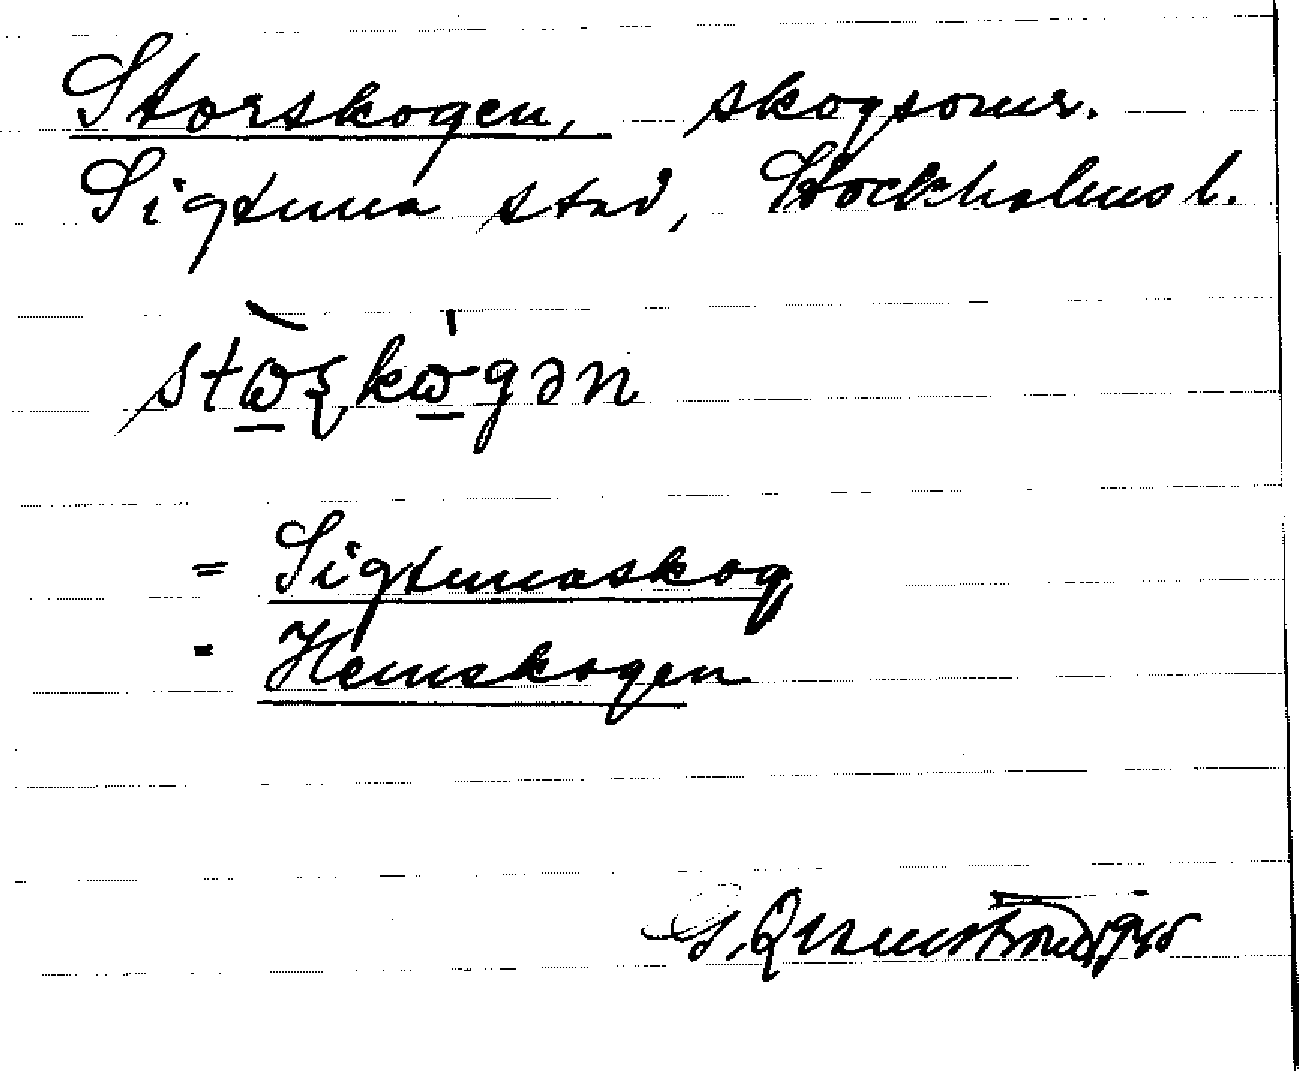 Storskogen, skogsomr.
Sigtuna stad, Stockholms l.
= Sigtunaskog
= Hemskogen